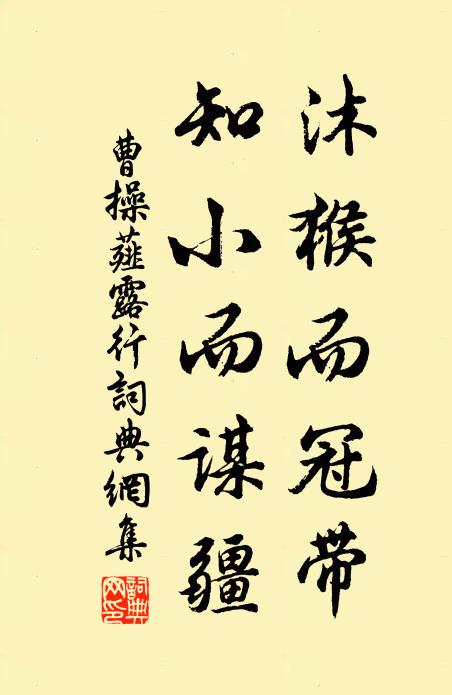 沐猴而冠带
知小而谋疆
曹操薤露行詞典網集
詞典网印